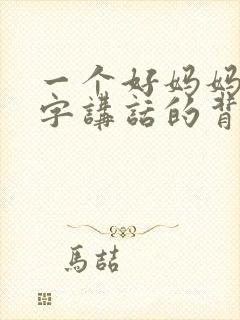 一个好妈妈
字講話的背
馬喆